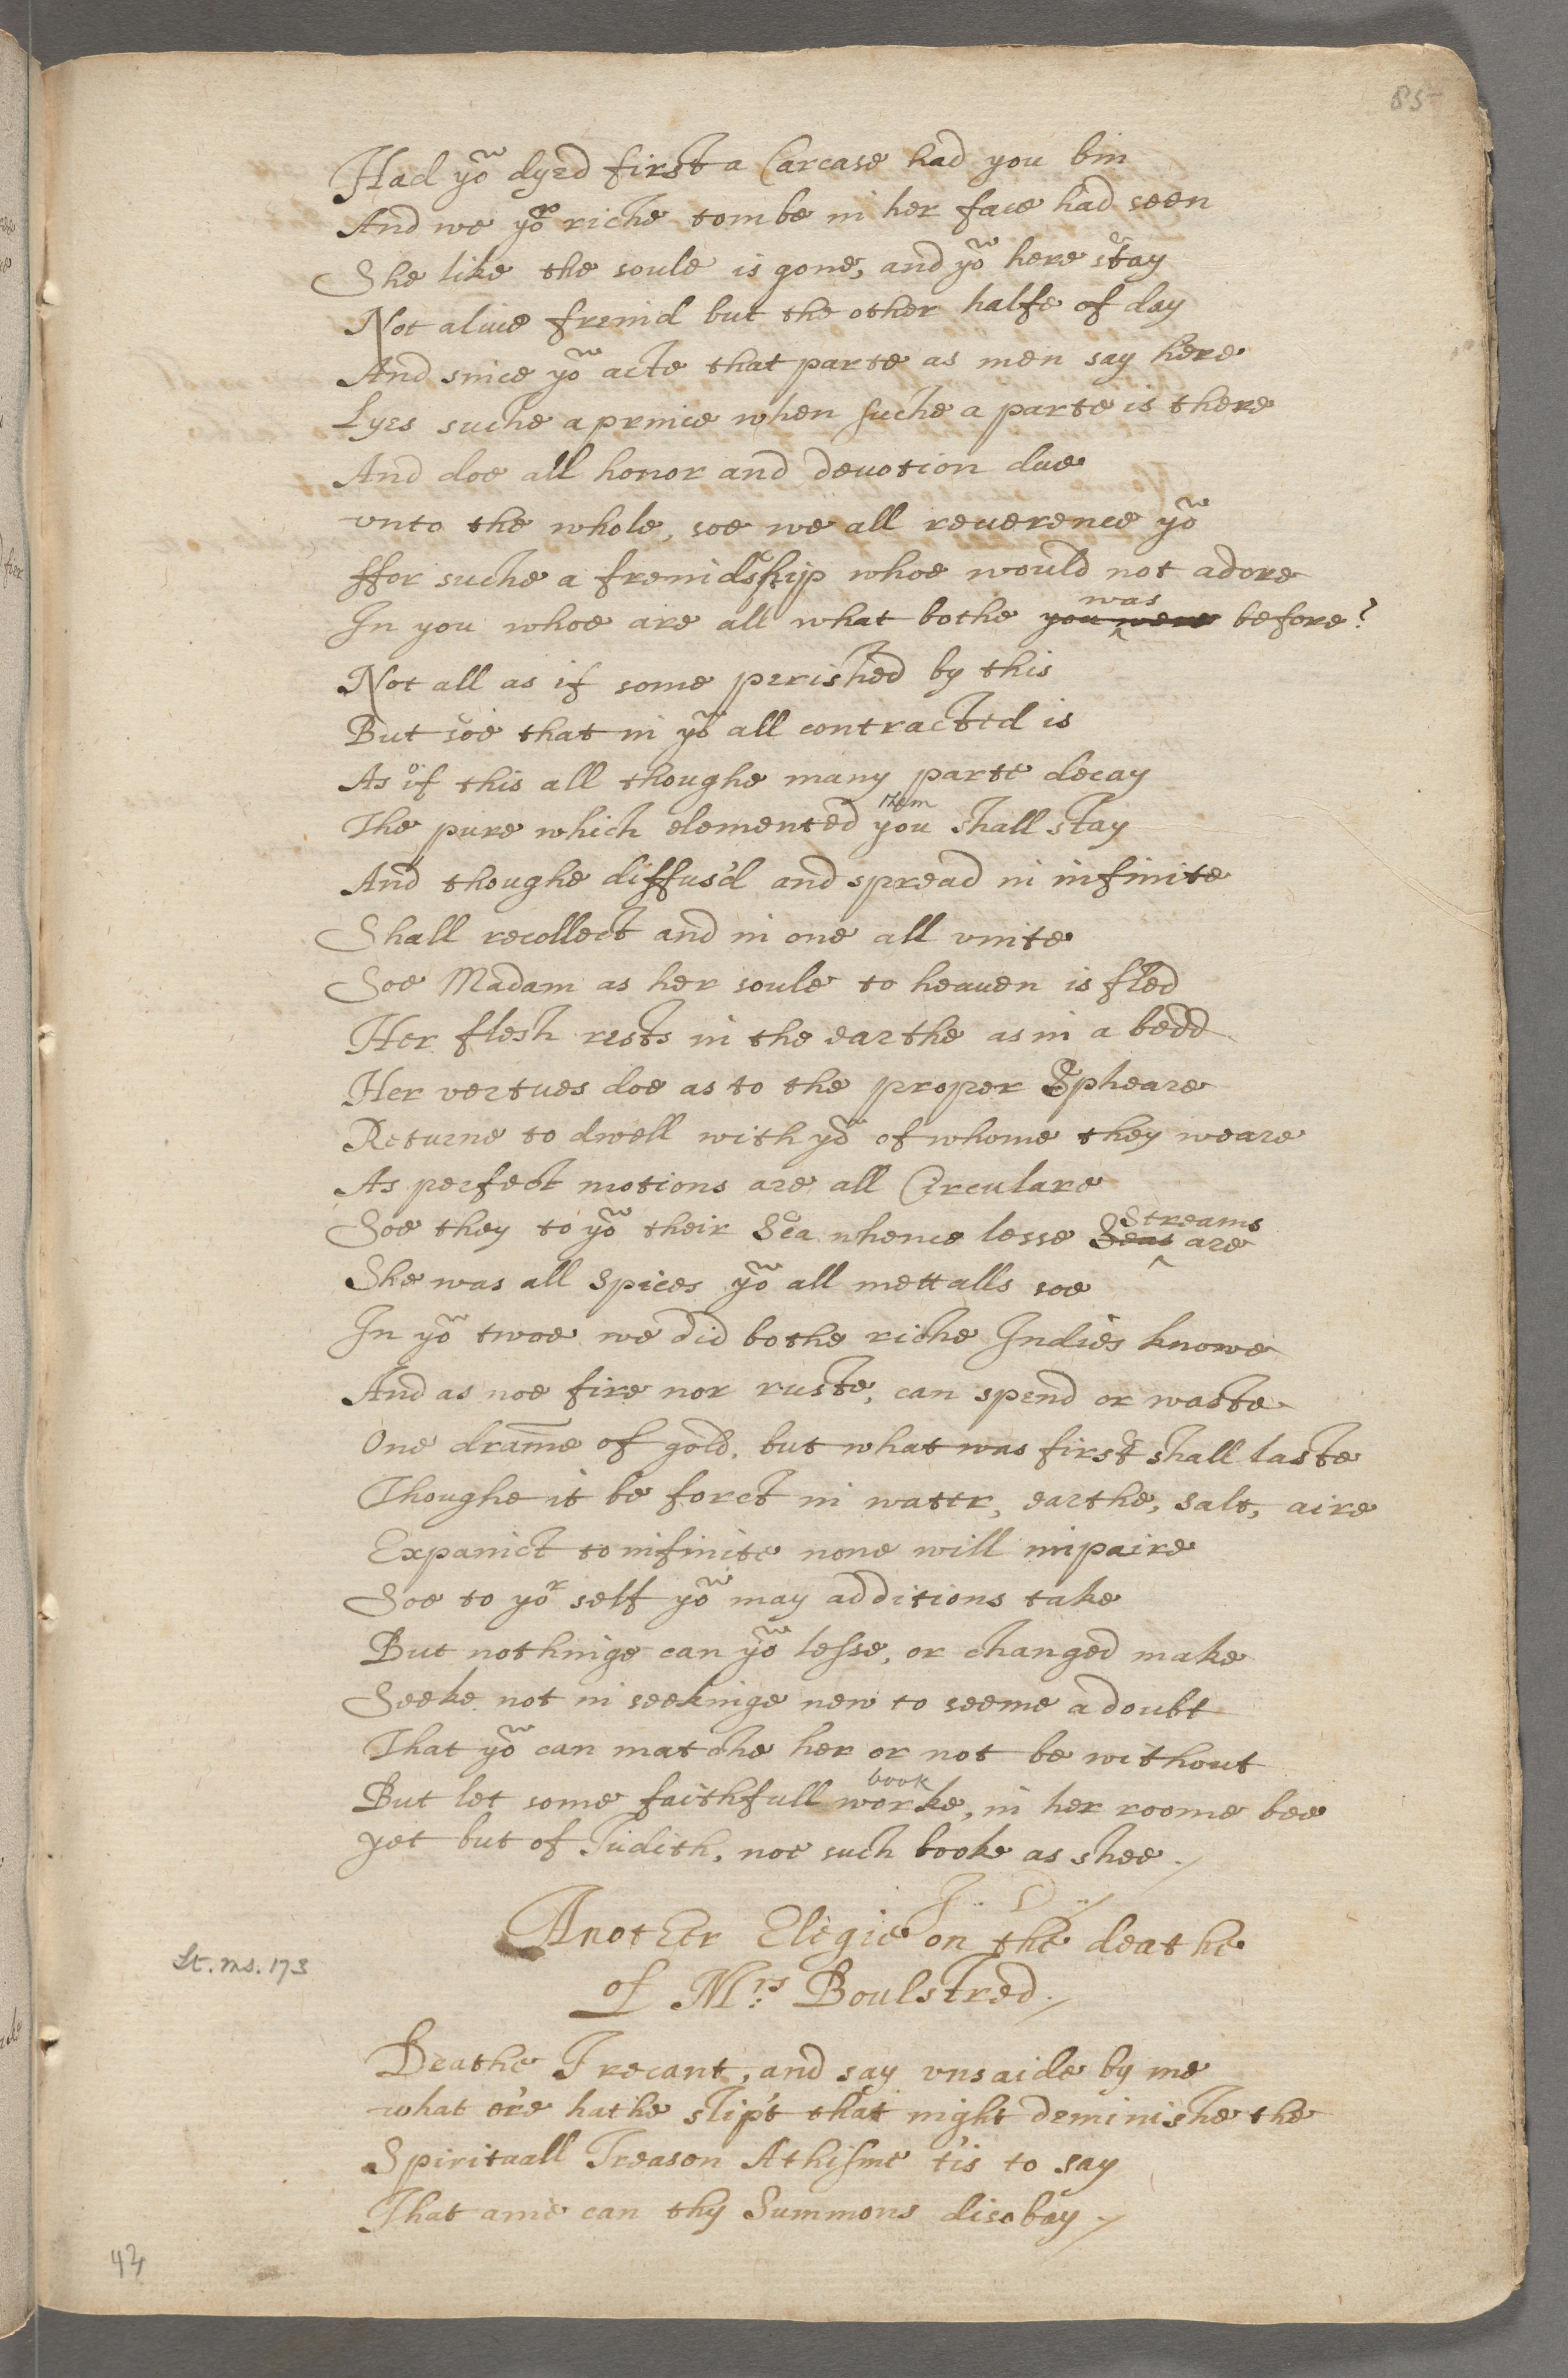 85
Had yoᵘ dyed first a Carcase had you bin
And we yoʳ riche tombe in her face had seen
She like the soule is gone, and yoᵘ here stay
Not aliue freind but the other halfe of day
And since yoᵘ acte that parte as men say here
Lyes suche a prince when suche a parte is there
And doe all honor and devotion due
vnto the whole, soe we all reuerence yoᵘ
ffor suche a freindship whoe would not adore
In you whoe are all what bothe you were was before?
Not all as if some perished by this
But soe that in yoᵘ all contracted is
As of this all thoughe many parte decay
The pure which elemented you them shall stay
And thoughe diffus'd and spread in infinite
Shall recollect and in one all vnite
Soe Madam as her soule to heauen is fled
Her flesh rests in the earthe as in a bedd
Her vertues doe as to the proper Spheare
Returne to dwell with yoᵘ of whome they weare
As perfect motions are all Circulare
Soe they to yoᵘ their Sea whence lesse Seas Streams are
She was all Spices yoᵘ all mettalls soe
In yoᵘ twoe we did bothe riche Indies knowe
And as noe fire nor ruste, can spend or waste
One dram̄e of gold, but what was first shall laste
Thoughe it be forct in watter, earthe, salt, aire
Expanict to infinite none will impaire
Soe to yoʳ self yoᵘ may additions take
But nothinge can yoᵘ lesse, or changed make
Seeke not in seekinge new to seeme a doubt
That yoᵘ can matche her or not be without
But let some faithfull worke book, in her roome bee
yet but of Judith, noe such booke as shee.
J: D:
Another Elegie on the deathe
of Mʳˢ: Boulstred.
Deathe I recant, and say vnsaide by me
what ere hathe slip't that might deminishe the
Spirituall Treason Athisme t'is to say
That anie can thy Summons disobay.
Lt. ms. 173
43